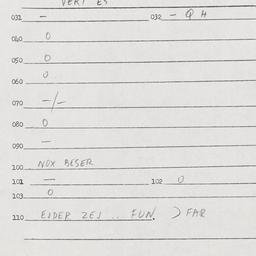 VERT ES
031 — 032 — Q H
040 0
050 0
060 0
070 -/-
080 0
090 —
100 NOX BESER
101 — 102 0
103 0
110 EIDER ZEJ .. FUN. ) FAR